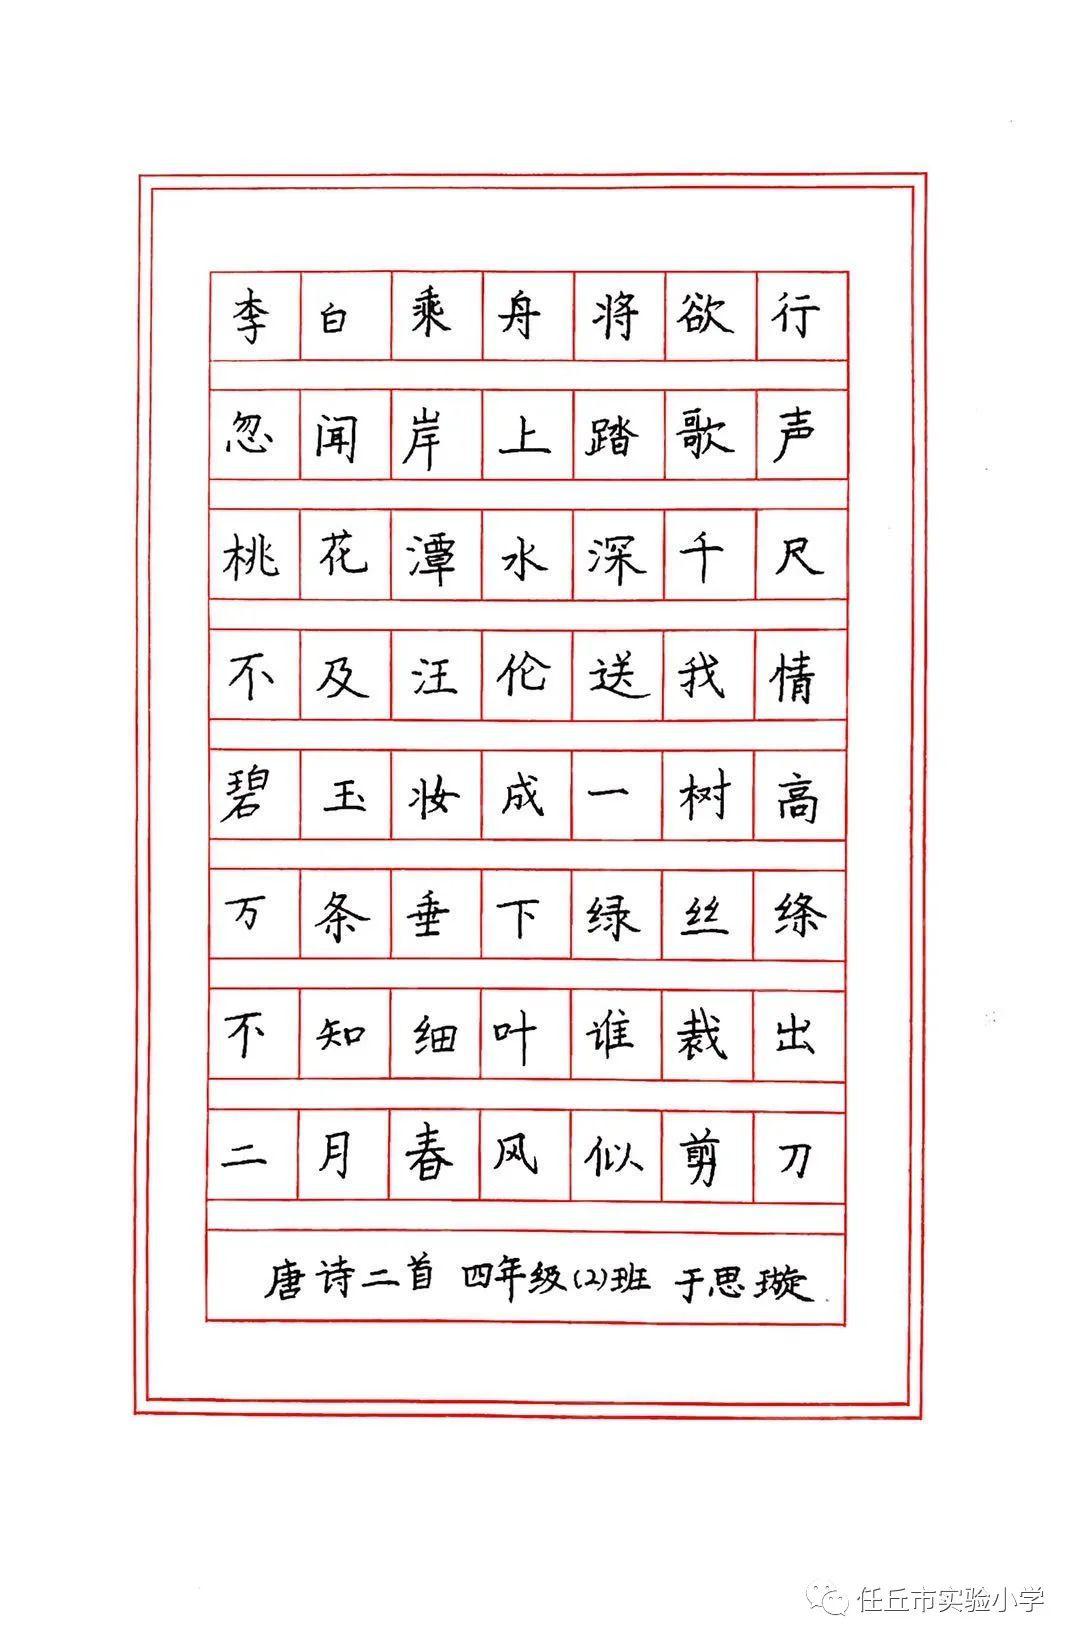 李白乘舟将欲行
忽闻岸上踏歌声
桃花潭水深千尺
不及汪伦送我情
碧玉妆成一树高
万条垂下绿丝绦
不知细叶谁裁出
二月春风似剪刀
唐诗二首 四年级(2)班 于思璇
任丘市实验小学